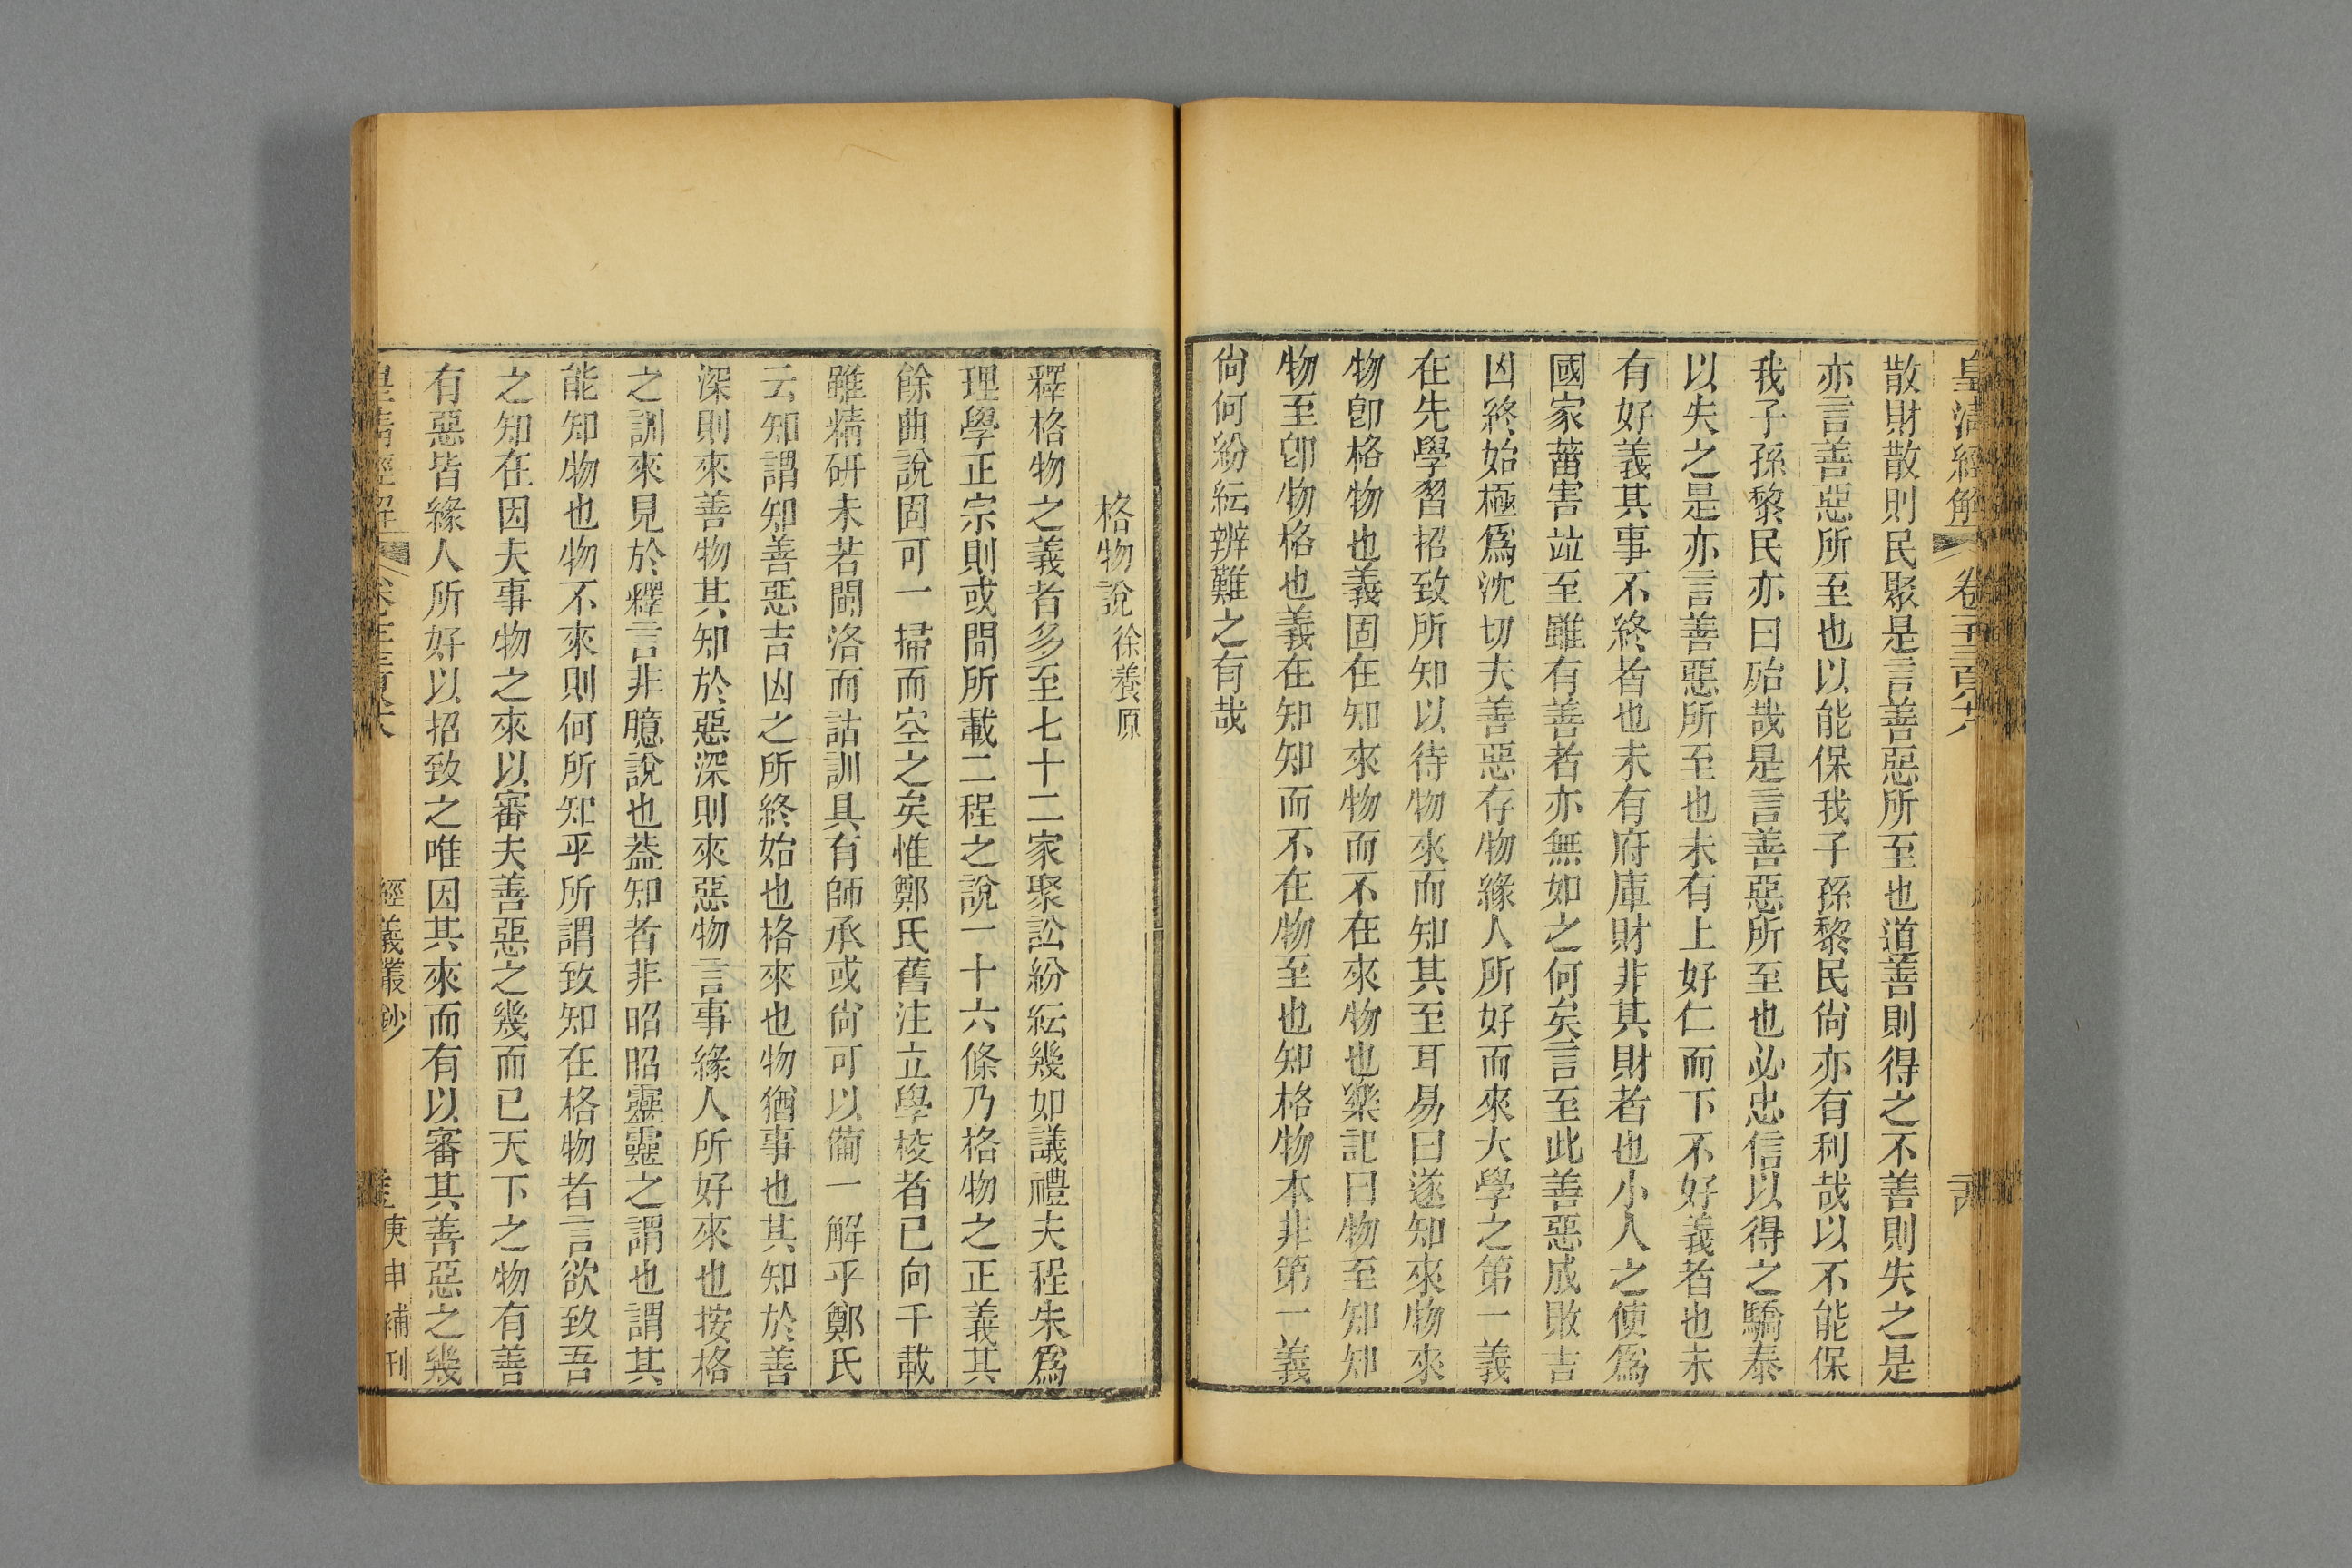 皇清經解
散財散則民聚是言善惡所至也道善則得之不善則失之是
亦言善惡所至也以能保我子孫黎民尙亦有利哉以不能保
我子孫黎民亦曰殆哉是言善惡所至也必忠信以得之驕泰
以失之是亦言善惡所至也未有上好仁而下不好義者也未
有好義其事不終者也未有府庫財非其財者也小人之使爲
國家菑害竝至雖有善者亦無如之何矣言至此善惡成敗吉
凶終始極爲沈切夫善惡存物緣人所好而來大學之第一義
在先學習招致所知以待物來而知其至耳易曰遂知來物來
物卽格物也義固在知來物而不在來物也樂記曰物至知知
物至卽物格也義在知知而不在物至也知格物本非第一義
尙何紛紜辨難之有哉
格物說 徐養原
釋格物之義者多至七十二家聚訟紛紜幾如議禮夫程朱爲
理學正宗則或問所載二程之說一十六條乃格物之正義其
餘曲說固可一掃而空之矣惟鄭氏舊注立學校者已向千載
雖精研未若閩洛而詁訓具有師承或尙可以備一解乎鄭氏
云知謂知善惡吉凶之所終始也格來也物猶事也其知於善
深則來善物其知於惡深則來惡物言事緣人所好來也按格
之訓來見於釋言非臆說也葢知者非昭昭靈靈之謂也謂其
能知物也物不來則何所知乎所謂致知在格物者言欲致吾
之知在因夫事物之來以審夫善惡之幾而已天下之物有善
有惡皆緣人所好以招致之唯因其來而有以審其善惡之幾
皇清經解
經義叢鈔
庚申補刊